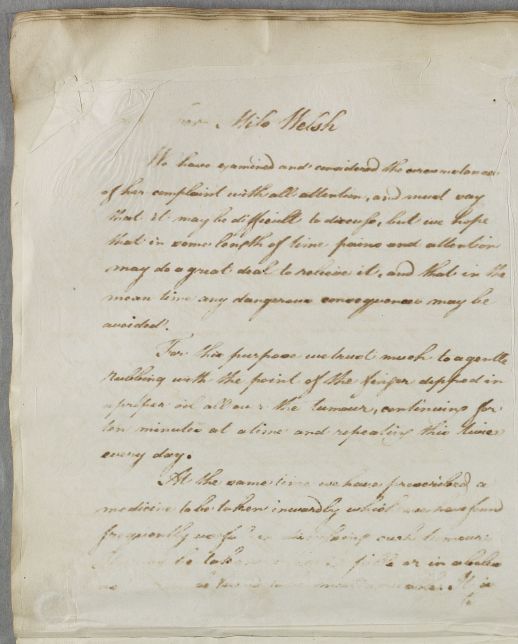 For Milo Welsh
We have examined and considered the circumstances
of her complaint with all attention, and must say
that it may be difficult to discuss, but we hope
that in some length of time pains and attention
may do a great deal to relieve it, and that in the
mean time any dangerous consequences may be
avoided.
For this purpose we trust much to a gentle
rubbing with the point of the finger dipped in
a proper oil all over the tumour, continuing for
ten minutes at a time and repeating this twice
every day.
At the same time we have prescribed a
medicine to be taken inwardly which we have found
frequently useful in dispersing such tumours
be taken or in a bolus
It is
to